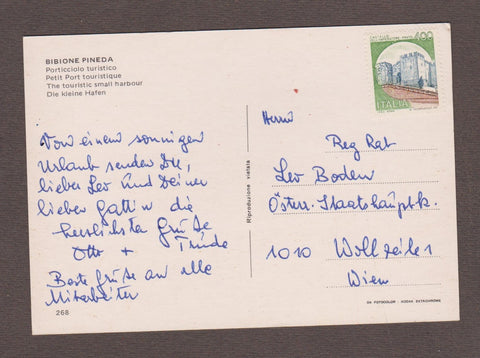 BIBIONE PINEDA
Porticciolo turistico
Petit Port touristique
The touristic small harbour
Die kleine Hafen
Von einem sonnigen
Urlaub senden Dir,
lieber Leo und Deiner
lieben Gattin die
herzlichsten Grüße
Otto + Trude
Beste Grüße an alle
Mitarbeiter
268
Riproduzione vietata
400
ITALIA
Herrn
Reg Rat
Leo Boden
Österr. Staatshauptk.
1010 Wollzeile 1
Wien
FOTOCOLOR KODAK EKTACHROME